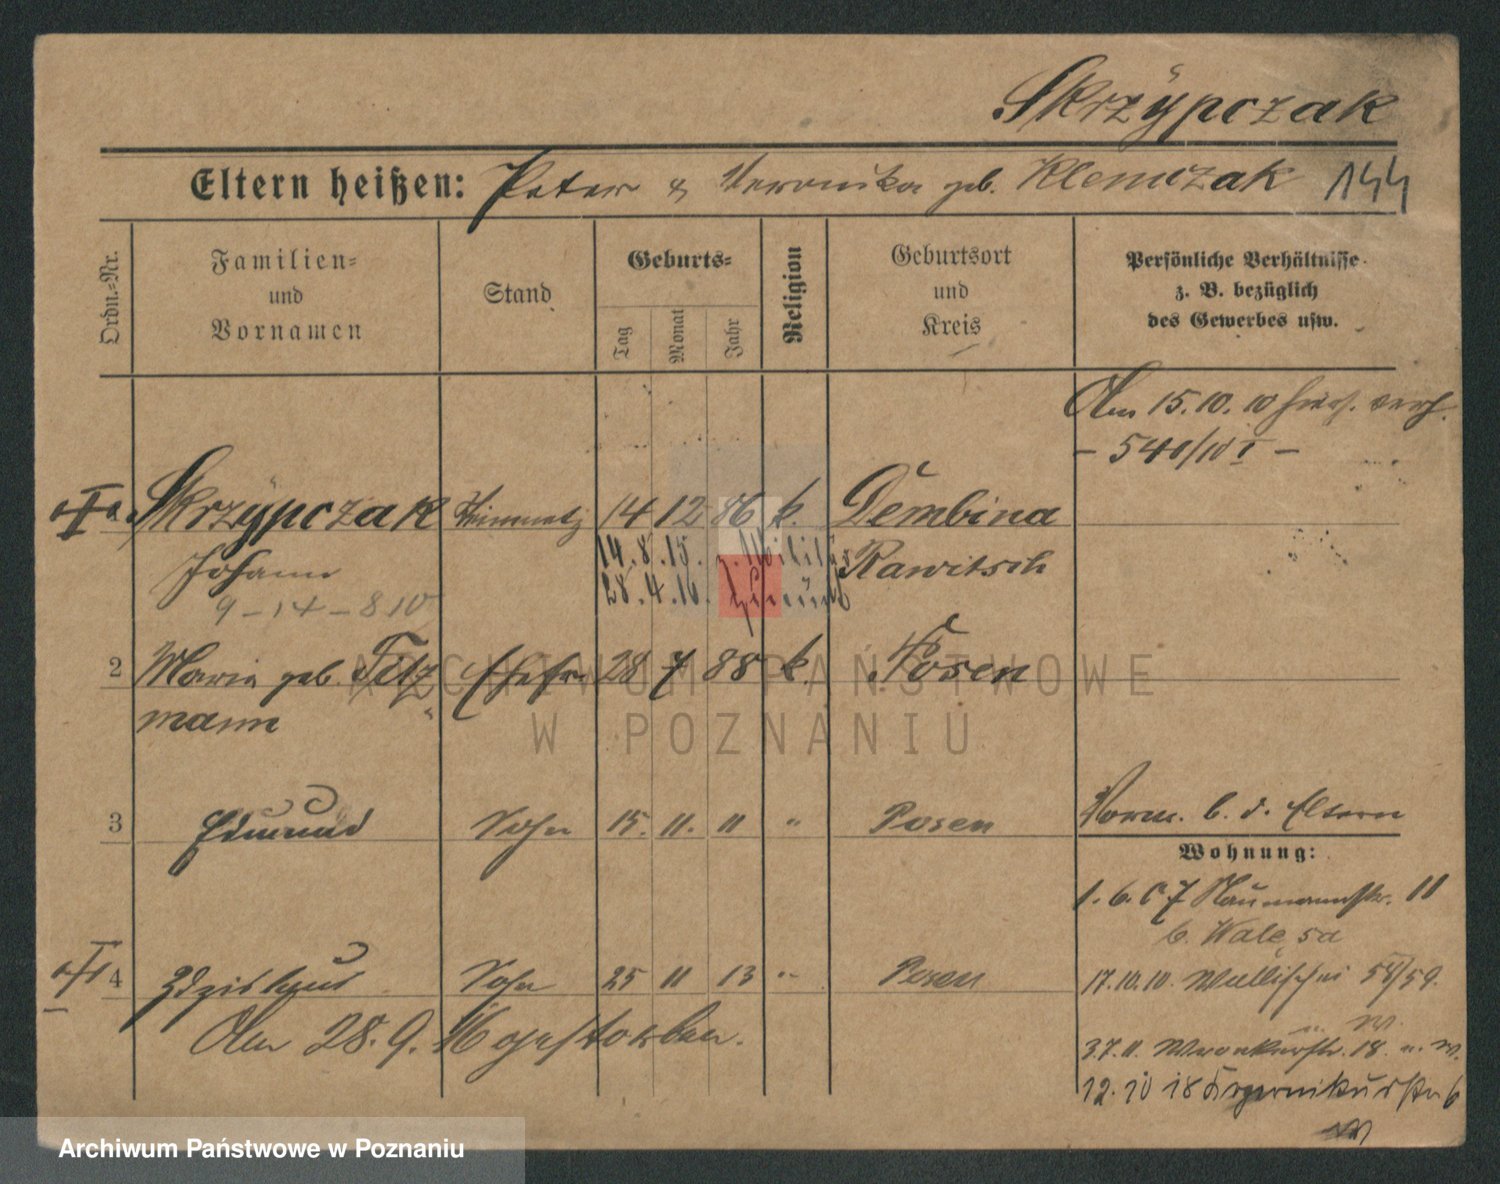 Skrzypczak
Eltern heißen: Peter & Veronika geb. Klemczak 144
Ordn.-Nr.
Familien-
und
Vornamen
Stand
Geburts-
Tag
Monat
Jahr
Religion
Geburtsort
und
Kreis
Persönliche Verhältnisse
z. B. bezüglich
des Gewerbes usw.
Am 15.10.10
- 540/10 I -
1 Skrzypczak 14 12 86 k. Dembina
Johann 14.8.15. z. Militär Rawitsch
9-14-810 28.4.16. zurück
2 Maria geb. Tetz Ehefr. 28 7 88 k. Posen
mann
3 Edmund Sohn 15. 11. 11 " Posen
Vorm. b. d. Eltern
Wohnung:
1. 6. 07 Naumannstr. 11
b. Walesa
4 Sohn 25 11 13 " Posen
17.10.10. Wallischei 58/59.
Am 28.9.16 gestorben.
3.7.11. Wronkerstr. 18
12.10 18
Archiwum Państwowe
w Poznaniu
Archiwum Państwowe w Poznaniu